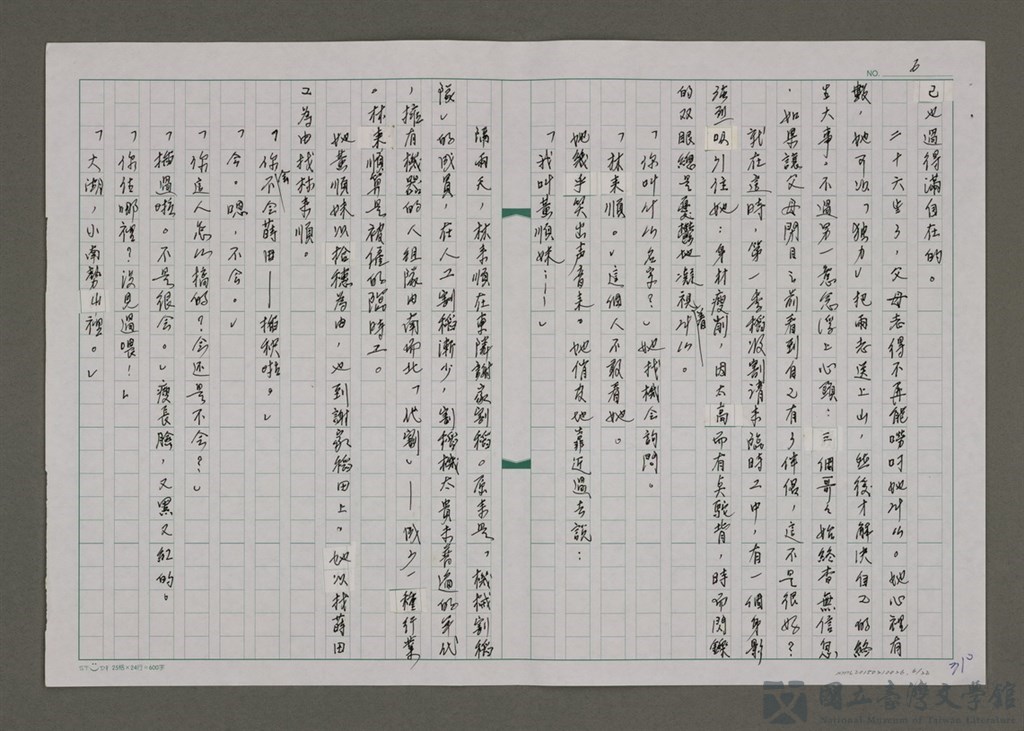 NO. 6
己也過得滿自在的。
二十六生了,父母老得不再能嘮叨她什么。她心裡有
數,她可以「独力」把兩老送上山,然後才解決自己的終
生大事。不過另一意念浮上心頭:三個哥哥始終杳無信息
,如果讓父母閉目之前看到自己有了伴侶,這不是很好?
就在這時,第一季稻收割請來臨時工中,有一個身影
強烈吸引住她:身材瘦削,因太高而有点駝背,時而閃鑠
的双眼總是憂鬱地凝視着什么。
「你叫什么名字?」她找機会詢問。
「林来順。」這個人不敢看她。
她幾乎笑出声音來。她俏皮地靠近過去說:
「我叫黃順妹……」
隔兩天,林来順在東隣謝家割稻。原来是,機械割稻
隊」的成員,在人工割稻漸少,割稻機太貴未普遍的年代
,擁有機器的人組隊由南而北「代割」——成了一種行業
。林来順算是被僱的臨時工。
她黃順妹以拾穗為由,也到謝家稻田上。她以找蒔田
工為由找林来順。
「你不会蒔田——插秧啦。」
会
「会。嗯,不会。」
「你這人怎么搞的?会还是不会?」
「插過啦。不是很会。」瘦長臉,又黑又紅的。
「你住哪裡?沒見過喂!」
「大湖,小南勢山裡。」
25格×24行=600字
310
國立臺灣文學館
National Museum of Taiwan Literature